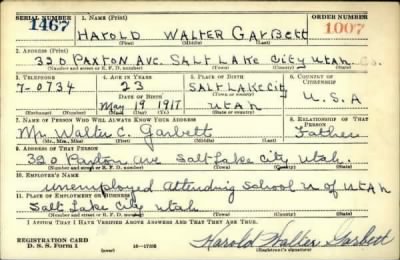 SERIAL NUMBER 1. NAME (Print) ORDER NUMBER
1467 HAROLD WALTER GARBETT 1007
(First) (Middle) (Last)
2. ADDRESS (Print)
320 PAXTON AVE. SALT LAKE CITY UTAH. Co.
(Number and street or R. F. D. number) (Town) (County) (State)
3. TELEPHONE 4. AGE IN YEARS 5. PLACE OF BIRTH 6. COUNTRY OF CITIZENSHIP
7-0734 23 SALT LAKE CITY
DATE OF BIRTH (Town or county) U.S.A
May 19 1917 UTAH
(Exchange) (Number) (Mo.) (Day) (Yr.) (State or country)
7. NAME OF PERSON WHO WILL ALWAYS KNOW YOUR ADDRESS 8. RELATIONSHIP OF THAT PERSON
Mr. Walter C. Garbett Father
(Mr., Mrs., Miss) (First) (Middle) (Last)
9. ADDRESS OF THAT PERSON
320 Paxton Ave Salt Lake City Utah.
(Number and street or R. F. D. number) (Town) (County) (State)
10. EMPLOYER'S NAME
Unemployed Attending School U of UTAH
11. PLACE OF EMPLOYMENT OR BUSINESS
Salt Lake City Utah
(Number and street or R. F. D. number) (Town) (County) (State)
I AFFIRM THAT I HAVE VERIFIED ABOVE ANSWERS AND THAT THEY ARE TRUE.
REGISTRATION CARD
D. S. S. Form 1 (over) Harold Walter Garbett
(Registrant's signature)